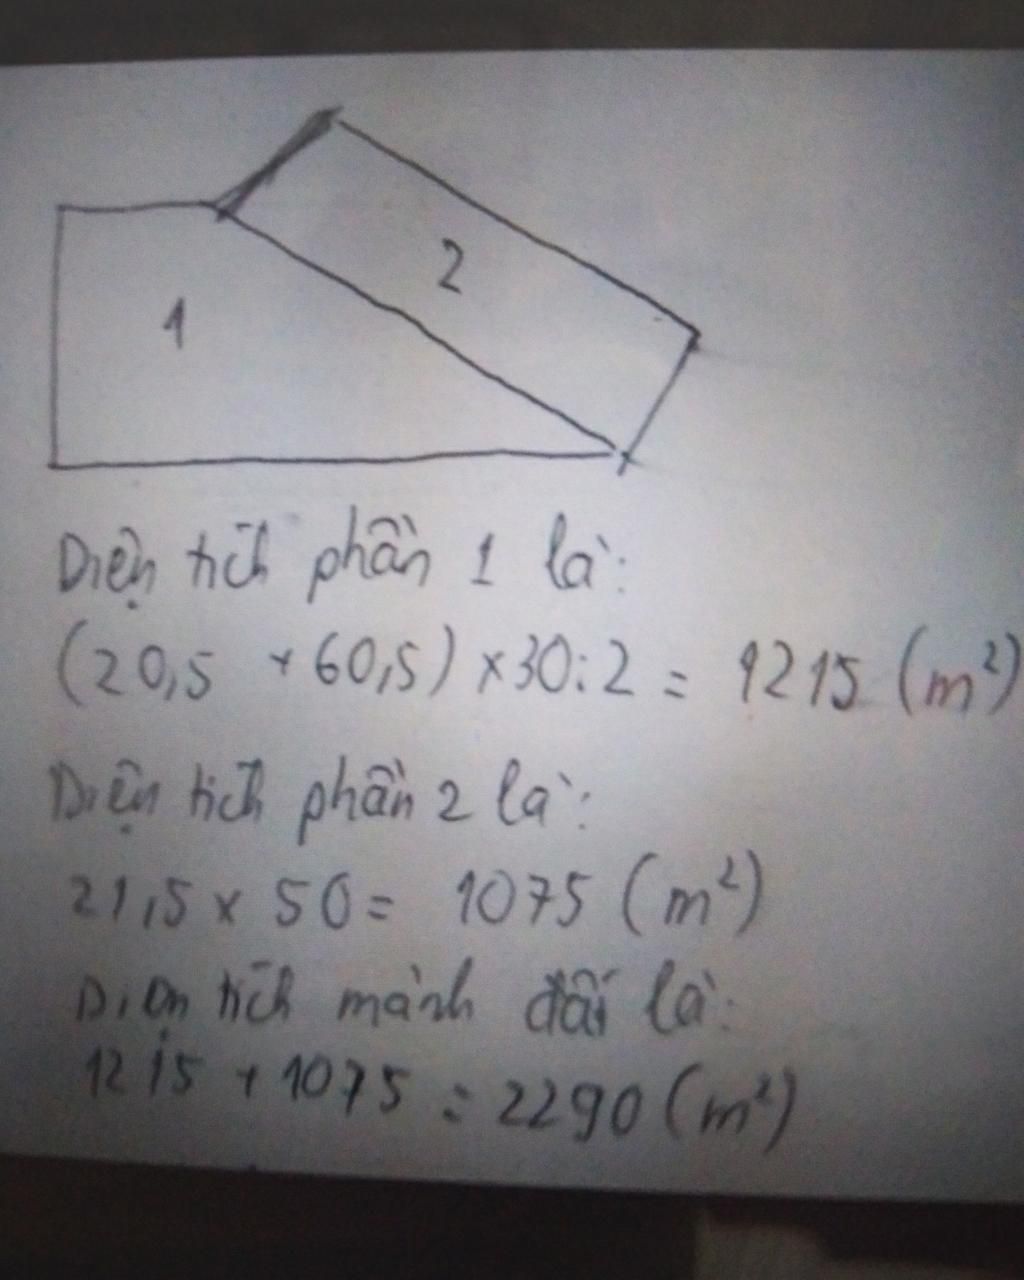 2
1
Diện tích phần 1 là:
(20,5 + 60,5) x 30 : 2 = 1215 (m²)
Diện tích phần 2 là:
21,5 x 50 = 1075 (m²)
Diện tích mảnh đất là:
1215 + 1075 = 2290 (m²)